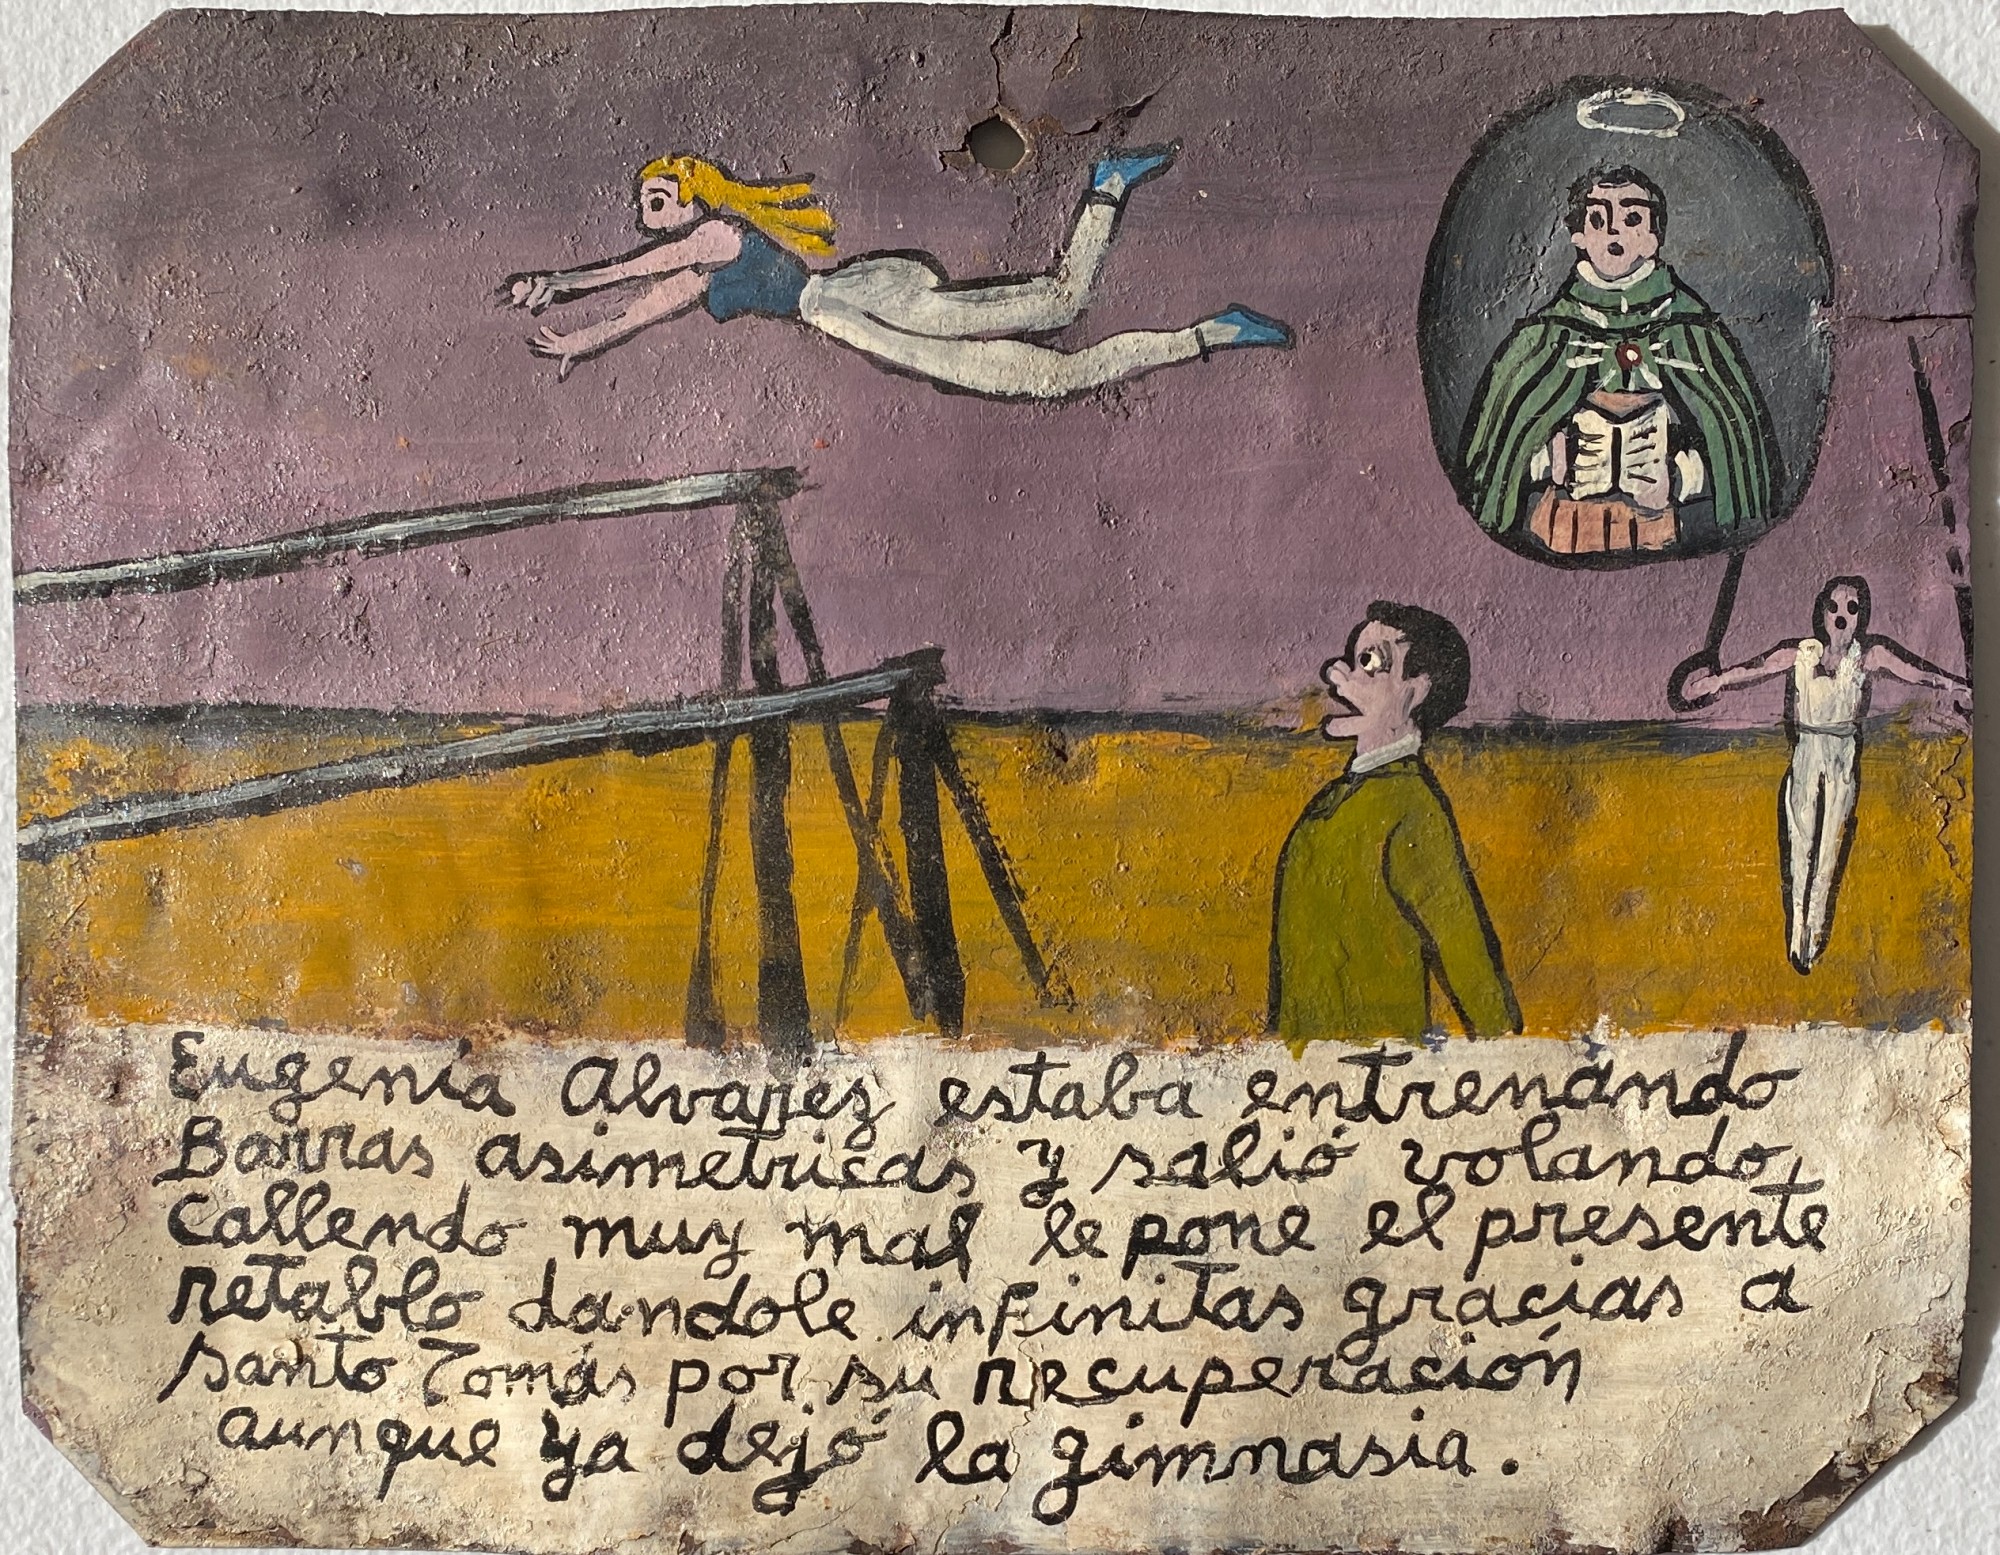 Eugenia Alvarez estaba entrenándo
Barras asimetricas y salió volando,
Callendo muy mal le pone el presente
retablo dandole infinitas gracias a
santo Tomás por su recuperación
aunque ya dejó la gimnasia.